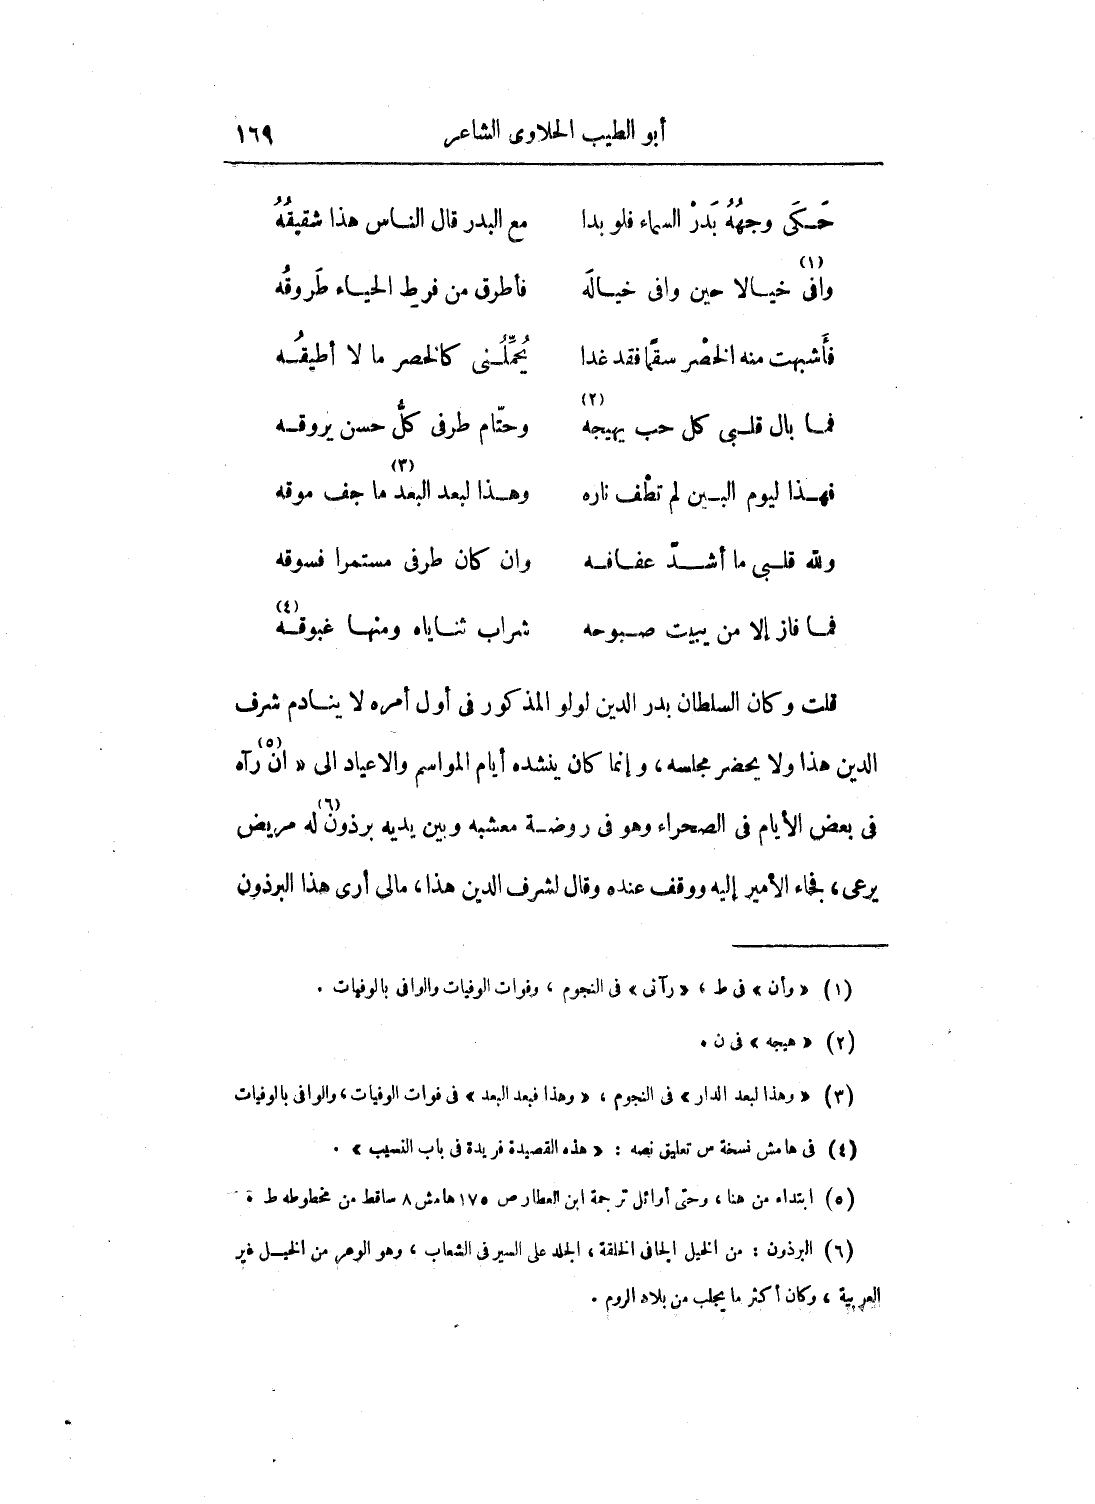 أبو الطيب الحلاوى الشاعر ١٦٩
حَكَى وجههُ بَدرْ السماء فلو بدا مع البدر قال الناس هذا شقيقُهُ
وافى (١) خيالا حين وافى خيالَه فأطرق من فرط الحياء طَروقُه
فأَشبهت منه الخصْر سقمًا فقد غدا يُحمِّلُنى كالخصر ما لا أطيقُه
فما بال قلبى كل حب يهيجه (٢) وحتّام طرفى كلُّ حسن يروقه
فهذا ليوم البين لم تطْف ناره وهذا لبعد البعد (٣) ما جف موقه
ولله قلبى ما أشدّ عفافه وان كان طرفى مستمرا فسوقه
فما فاز إلا من يبيت صبوحه شراب ثناياه ومنها غبوقه (٤)
قلت وكان السلطان بدر الدين لولو المذكور فى أول أمره لا ينادم شرف
الدين هذا ولا يحضر مجلسه ، وإنما كان ينشده أيام المواسم والاعياد الى « ان (٥) رآه
فى بعض الأيام فى الصحراء وهو فى روضة معشبه وبين يديه برذون (٦) له مريض
يرعى ، فجاء الأمير إليه ووقف عنده وقال لشرف الدين هذا ، مالى أرى هذا البرذون
(١) « وأن » فى ط ، « رآنى » فى النجوم ، وفوات الوفيات والوافى بالوفيات .
(٢) « هيجه » فى ن .
(٣) « وهذا لبعد الدار » فى النجوم ، « وهذا فبعد البعد » فى فوات الوفيات ، والوافى بالوفيات
(٤) فى هامش نسخة س تعليق نصه : « هذه القصيدة فريدة فى باب النسيب » .
(٥) ابتداء من هنا ، وحتى أوائل ترجمة ابن العطار ص ١٧٥ هامش ٨ ساقط من مخطوطه ط
(٦) البرذون : من الخيل الجافى الخلقة ، الجلد على السير فى الشعاب ، وهو الوهر من الخيل غير
العربية ، وكان أكثر ما يجلب من بلاد الروم .